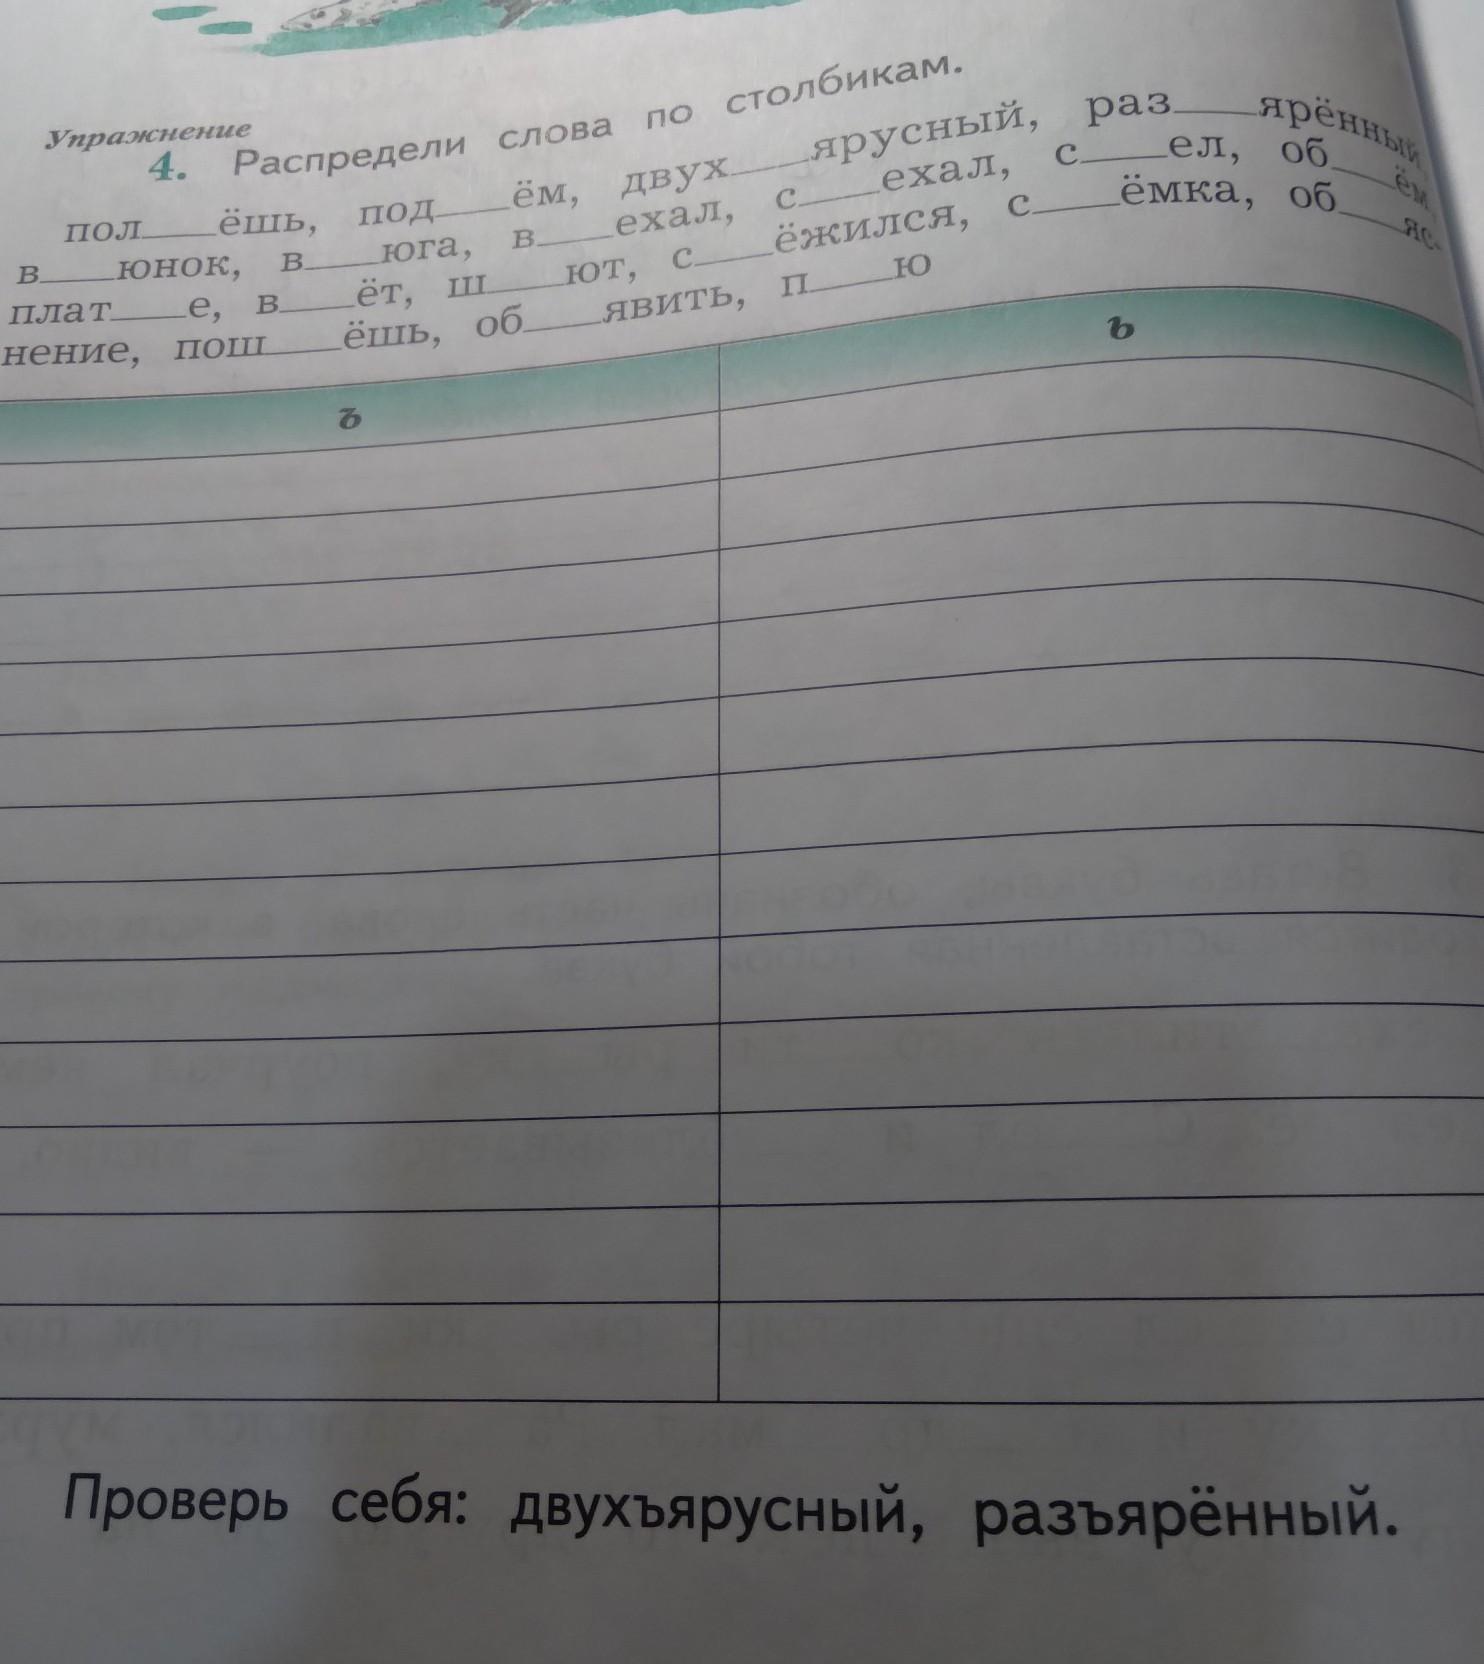 Упражнение
4. Распредели слова по столбикам.
пол___ёшь, под___ём, двух___ярусный, раз___ярённый,
в___юнок, в___юга, в___ехал, с___ехал, с___ел, об___ём,
плат___е, в___ёт, ш___ют, с___ёжился, с___ёмка, об___яс-
нение, пош___ёшь, об___явить, п___ю
ъ ь
Проверь себя: двухъярусный, разъярённый.